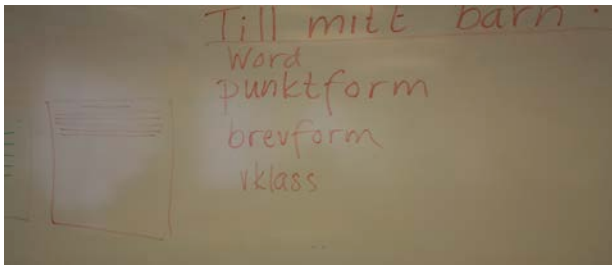 Till mitt barn.
Word
punktform
brevform
vklass